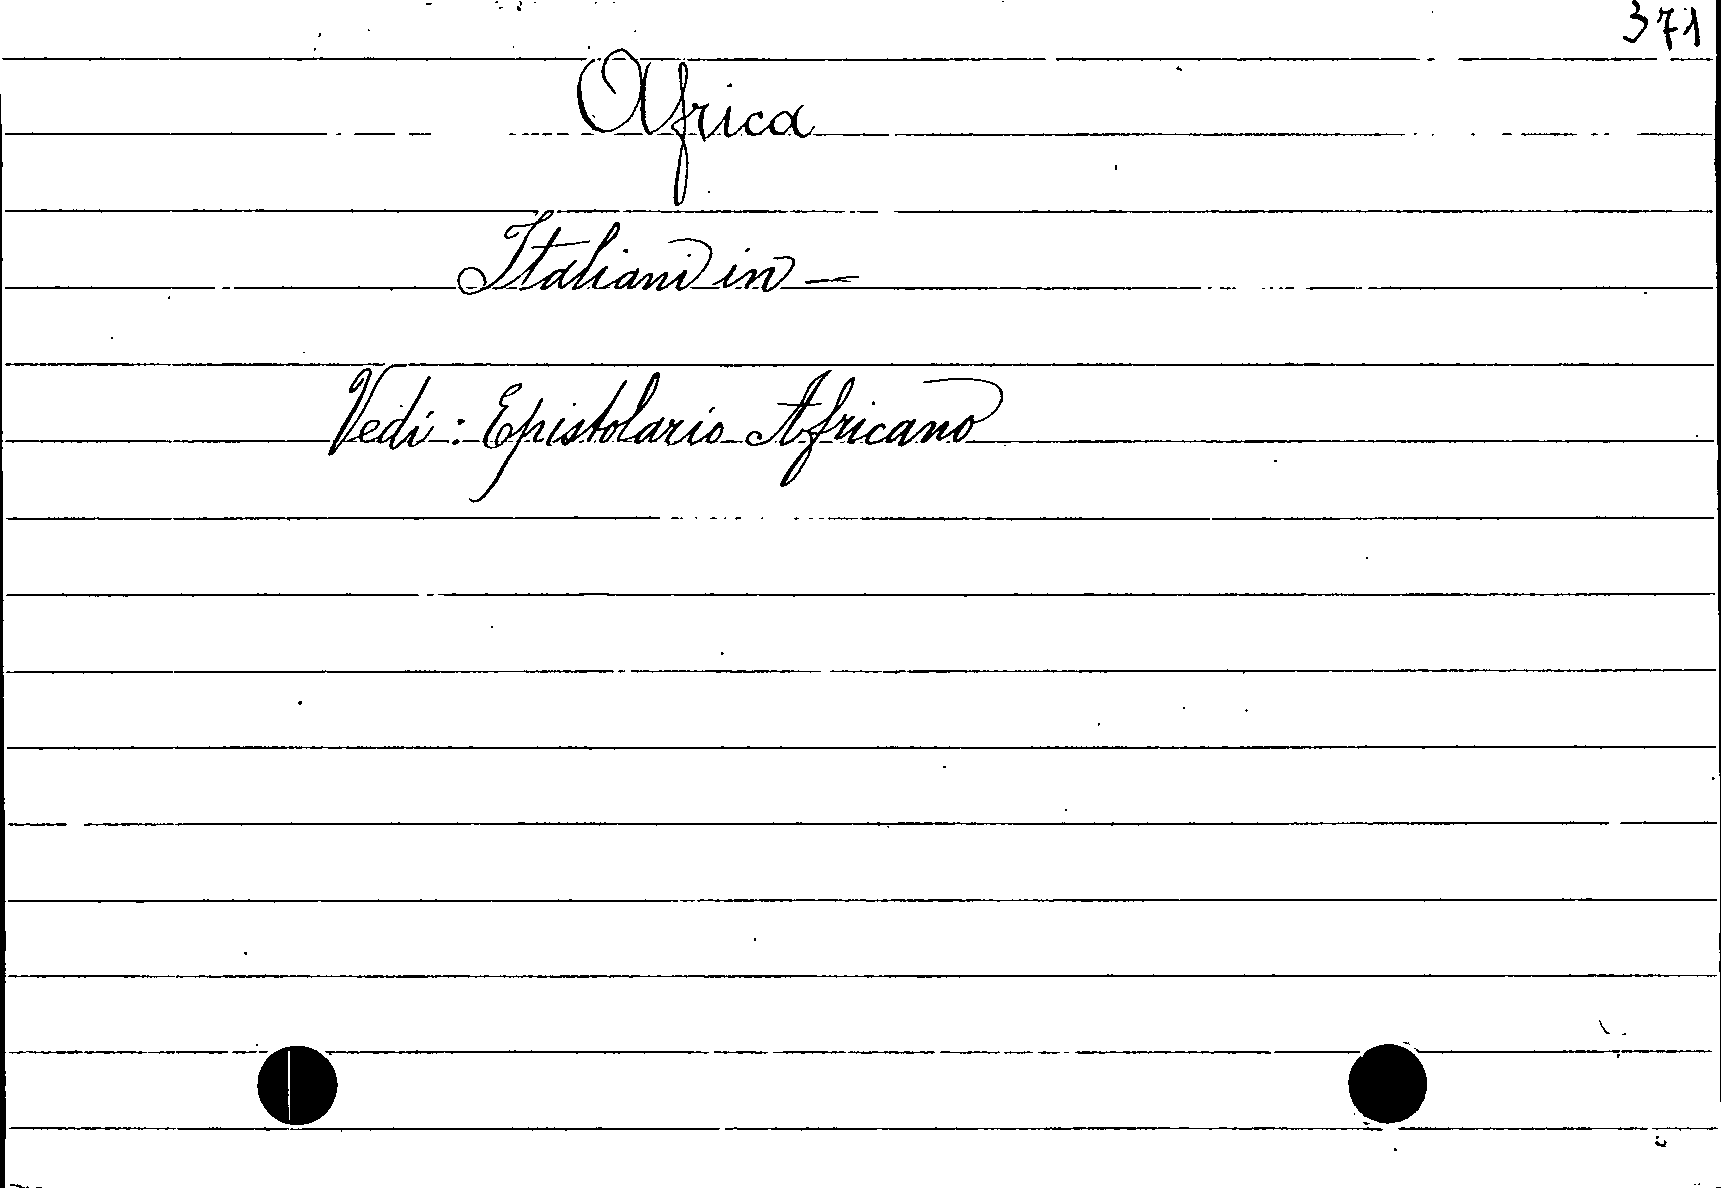 371
Africa
Italiani in —
Vedi: Epistolario Africano